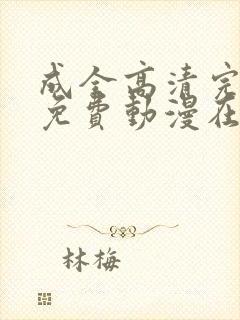 成全高清完
免費動漫在
林梅